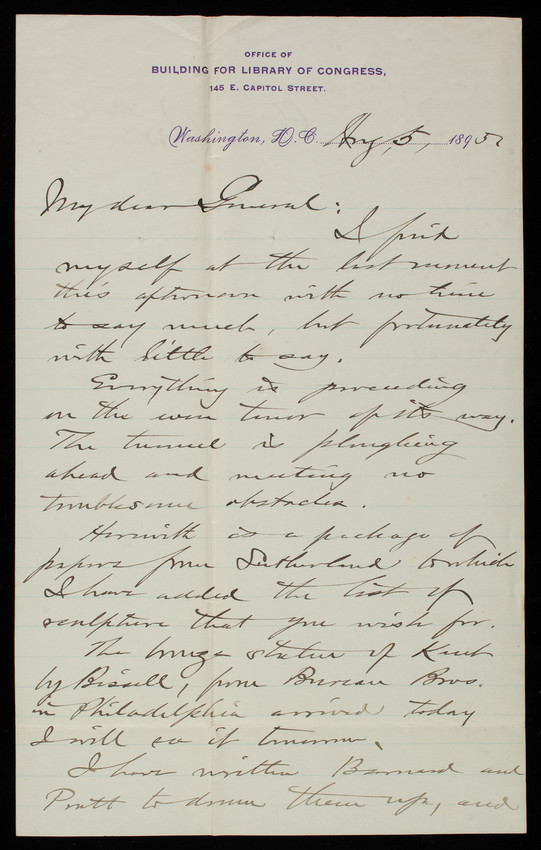 OFFICE OF
BUILDING FOR LIBRARY OF CONGRESS,
145 E. CAPITOL STREET.
Washington, D. C. Aug. 5, 1895
My dear General:
I find
myself at the last moment
this afternoon with no time
to say much, but fortunately
with little to say.
Everything is proceeding
on the even tenor of its way.
The tunnel is ploughing
ahead and meeting no
troublesome obstacles.
Herewith is a package of
papers from Sutherland to which
I have added the list of
sculpture that you wish for.
The bronze statue of Kent
by Bissell, from Bureau Bros.
in Philadelphia arrived today
I will see it tomorrow.
I have written Barnard and
Pratt to drum them up, and